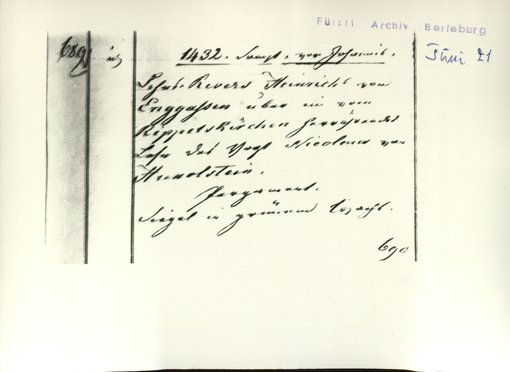 Fürstl. Archiv Berleburg
689
1432. Samst. vor Johannis.
Lehns Revers Heinrichs von
Enggassen über ein vom
Reppelskirchen herrührendes
Lehn des Vogt Nicolaus von
Hunolstein.
Pergament.
Siegel in grünem Wachs.
690